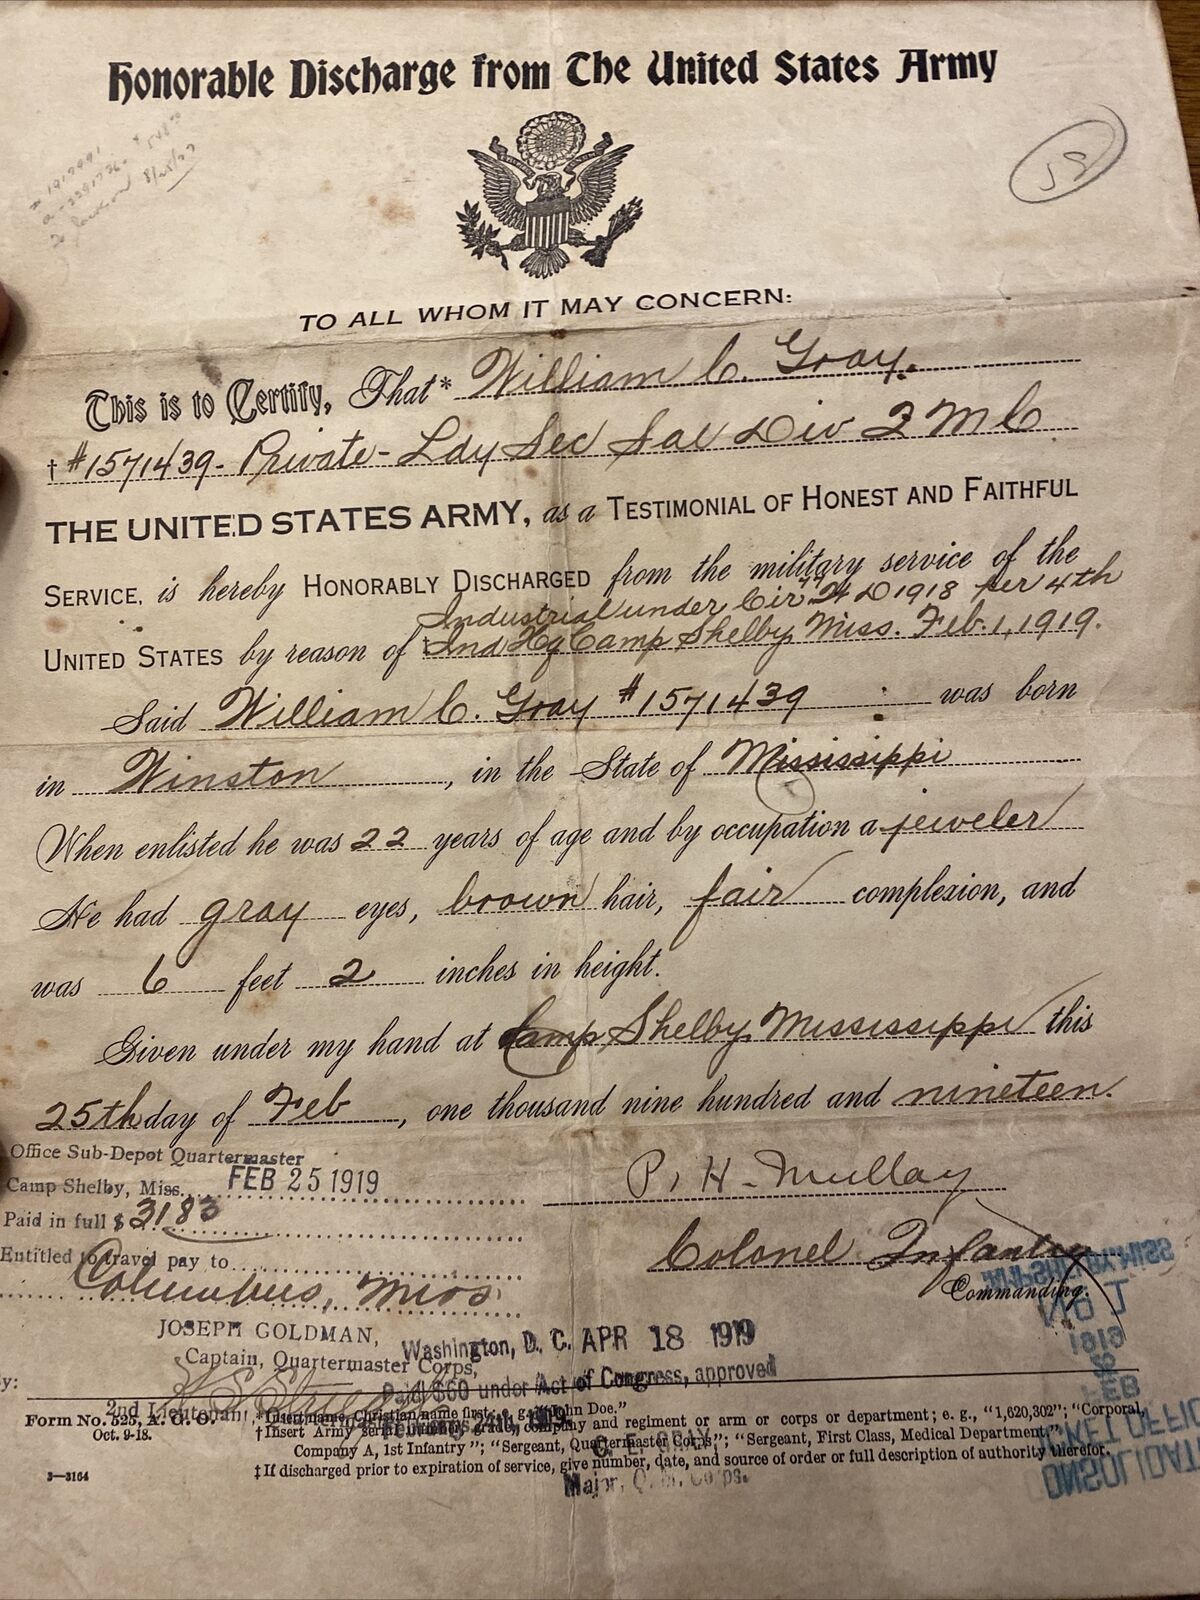 Honorable Discharge from The United States Army
52
TO ALL WHOM IT MAY CONCERN:
This is to Certify, That* William C. Gray.
†#1571439- Private - Ldy Sec Sal Div Q M C
THE UNITED STATES ARMY, as a TESTIMONIAL OF HONEST AND FAITHFUL
SERVICE, is hereby HONORABLY DISCHARGED from the military service of the
Industrial under Cir 24 D 1918 per 4th
UNITED STATES by reason of ‡Ind Hq Camp Shelby, Miss. Feb. 1, 1919.
Said William C. Gray #1571439 was born
in Winston, in the State of Mississippi
When enlisted he was 22 years of age and by occupation a jeweler
He had gray eyes, brown hair, fair complexion, and
was 6 feet 2 inches in height.
Given under my hand at Camp Shelby, Mississippi this
25th day of Feb, one thousand nine hundred and nineteen.
Office Sub-Depot Quartermaster
Camp Shelby, Miss. FEB 25 1919
P. H. Mullay
Paid in full $ 3183
Colonel Infantry
Commanding.
Entitled to travel pay to
Columbus, Miss
JOSEPH GOLDMAN,
Captain, Quartermaster Corps,
Washington, D. C. APR 18 1919
Paid $60 under Act of Congress, approved
2nd Lieutenant
24th, 1919.
C. E. GRAY,
Major, Q. M. Corps.
CAMP SHELBY MISS
No 1
1919
FEB
TICKET OFFICE
CONSOLIDAT
Form No. 525, A. G. O.
Oct. 9-18.
3—3164
*Insert name, Christian name first; e. g., "John Doe."
†Insert Army serial number, grade, company and regiment or arm or corps or department; e. g., "1,620,302"; "Corporal,
Company A, 1st Infantry"; "Sergeant, Quartermaster Corps"; "Sergeant, First Class, Medical Department."
‡If discharged prior to expiration of service, give number, date, and source of order or full description of authority therefor.